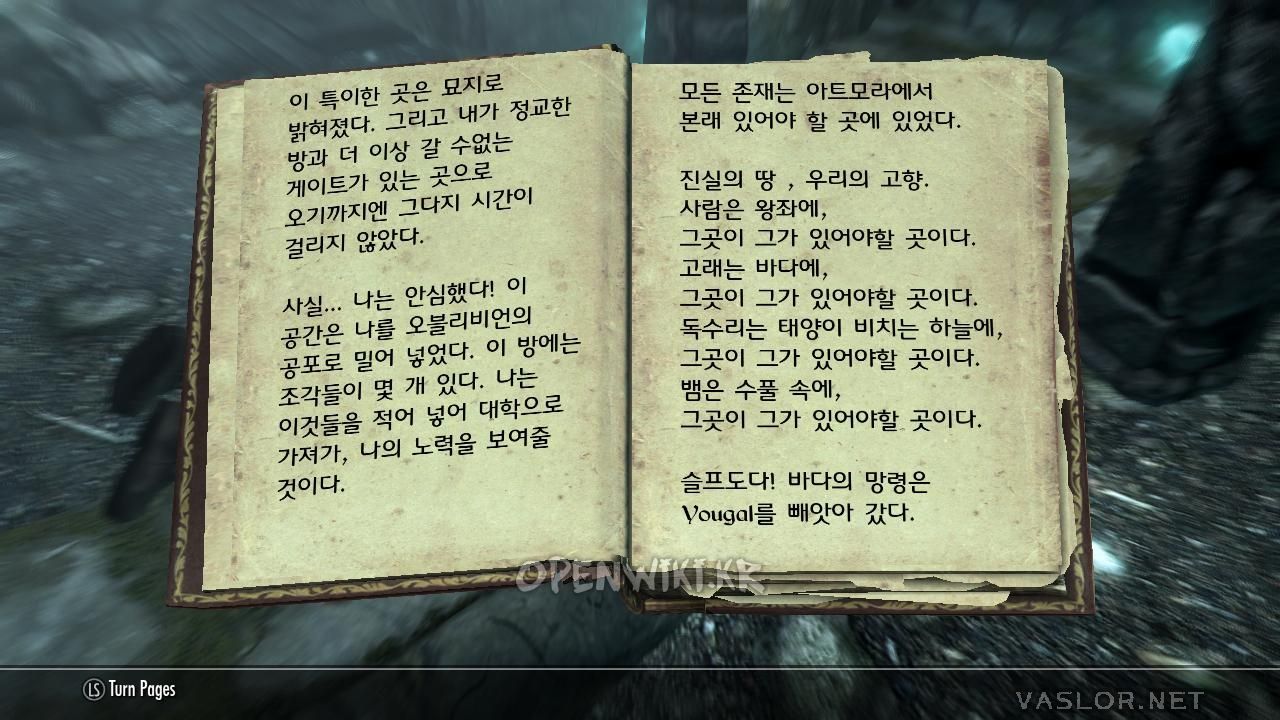 이 특이한 곳은 묘지로
밝혀졌다. 그리고 내가 정교한
방과 더 이상 갈 수없는
게이트가 있는 곳으로
오기까지엔 그다지 시간이
걸리지 않았다.
사실... 나는 안심했다! 이
공간은 나를 오블리비언의
공포로 밀어 넣었다. 이 방에는
조각들이 몇 개 있다. 나는
이것들을 적어 넣어 대학으로
가져가, 나의 노력을 보여줄
것이다.
모든 존재는 아트모라에서
본래 있어야 할 곳에 있었다.
진실의 땅 , 우리의 고향.
사람은 왕좌에,
그곳이 그가 있어야할 곳이다.
고래는 바다에,
그곳이 그가 있어야할 곳이다.
독수리는 태양이 비치는 하늘에,
그곳이 그가 있어야할 곳이다.
뱀은 수풀 속에,
그곳이 그가 있어야할 곳이다.
슬프도다! 바다의 망령은
Yougal를 빼앗아 갔다.
OPENWIKI.KR
LS Turn Pages
VASLOR.NET